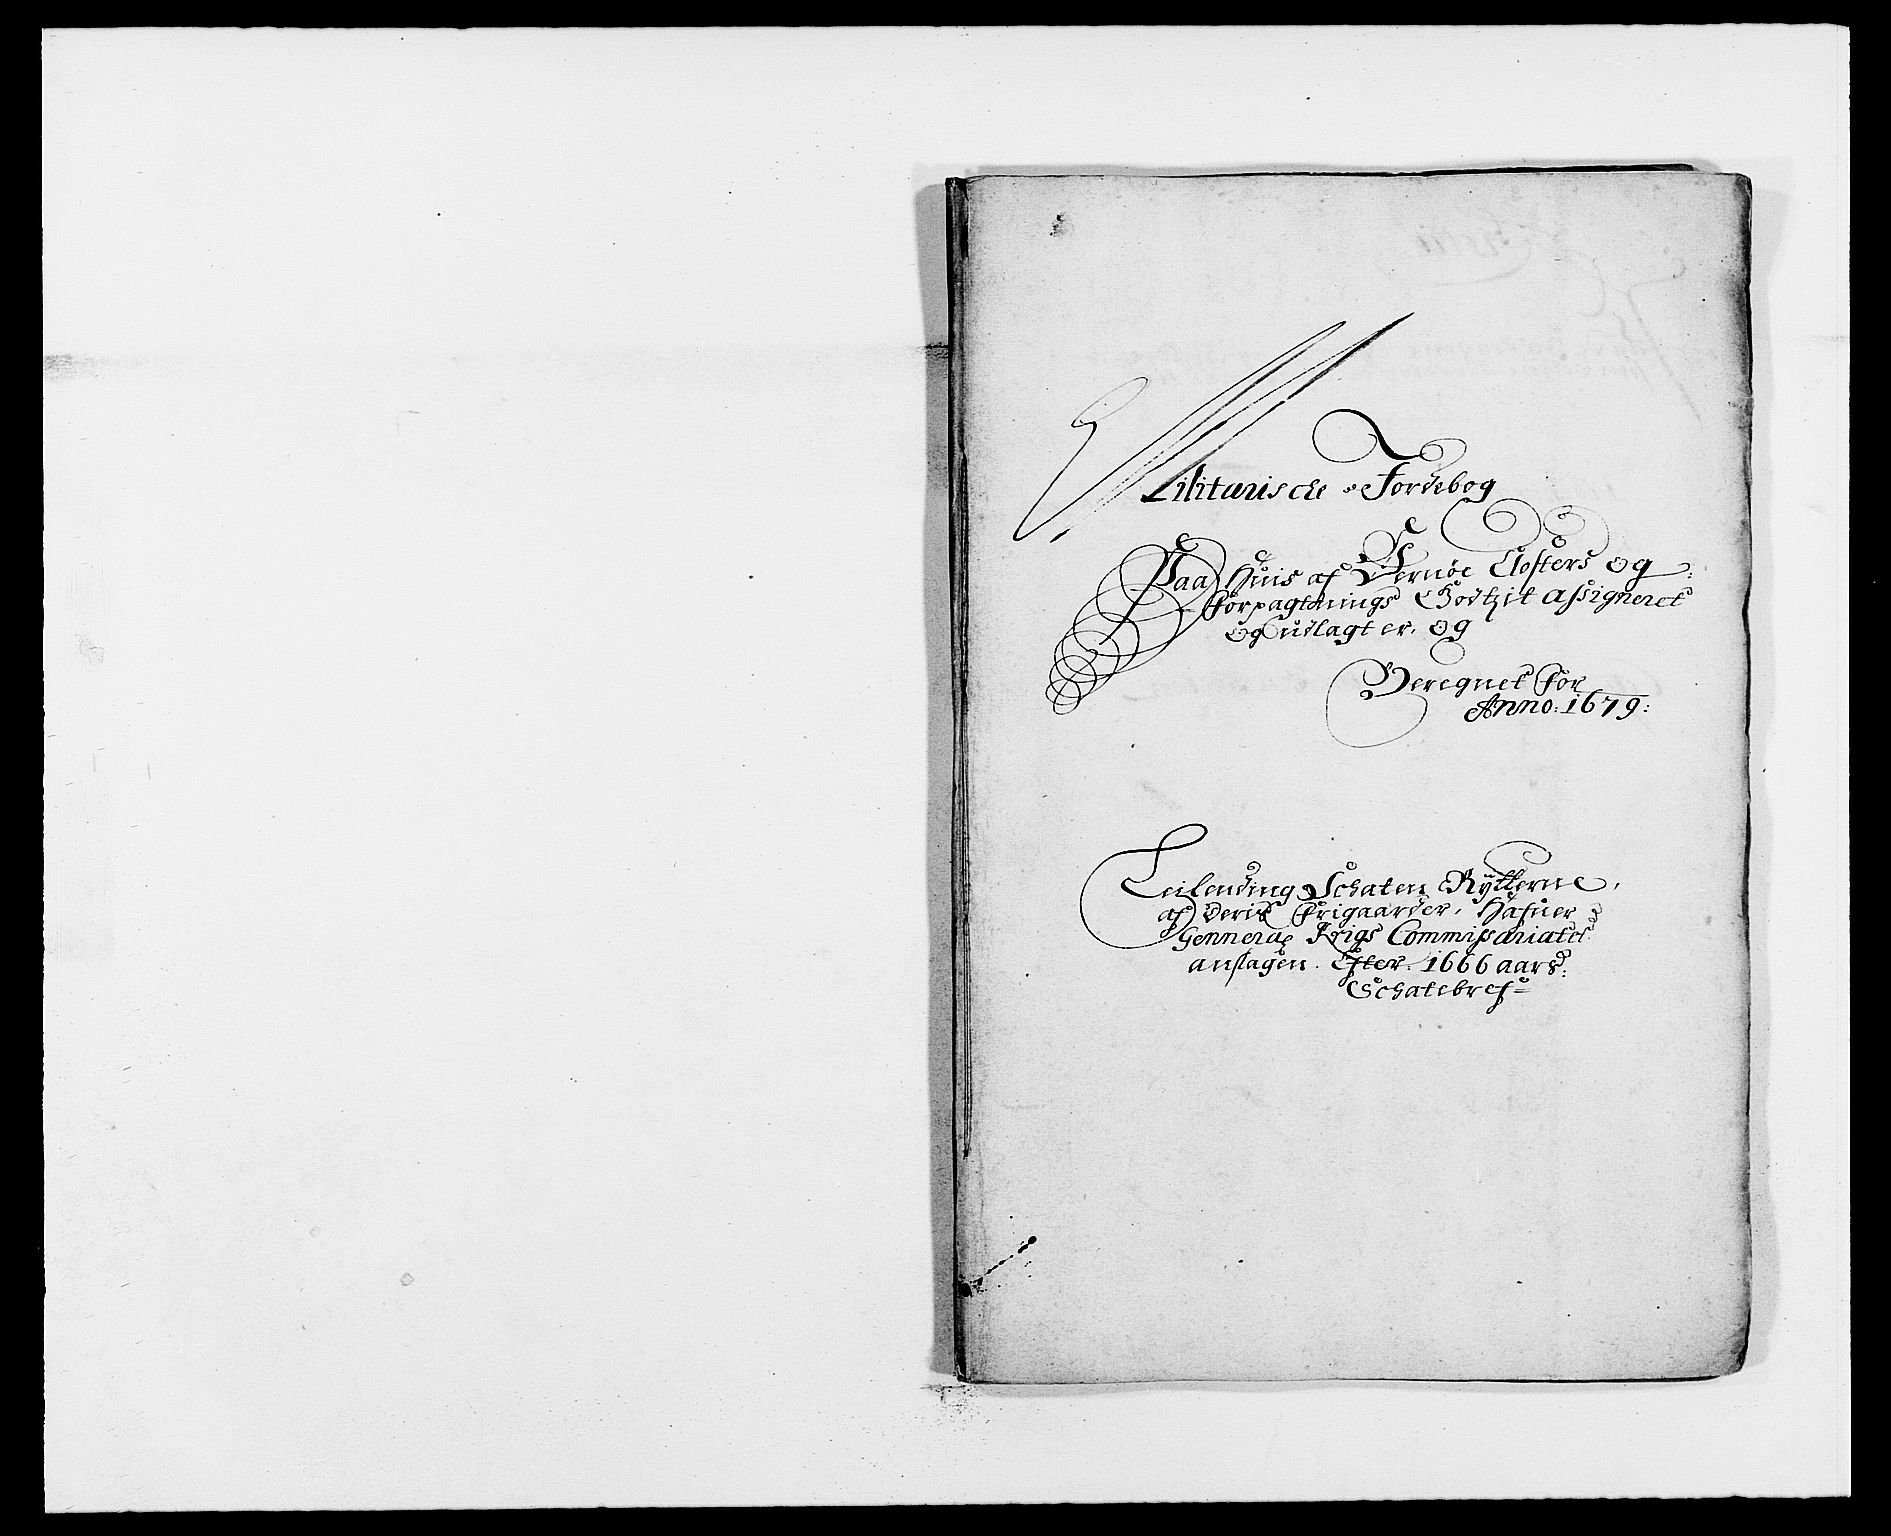 Militarische Jordebog
Paa Huis af Vernøe Closters og
Forpagtnings Godtzit assigneret
og udlagt er, og
Beregnet for
Anno: 1679:
Leilending Schaten Rytterne,
af deris Frigaarder, Hafuer
Genneral Krigs Commissariatet
anslagen. Efter. 1666 aars:
Schatebref=